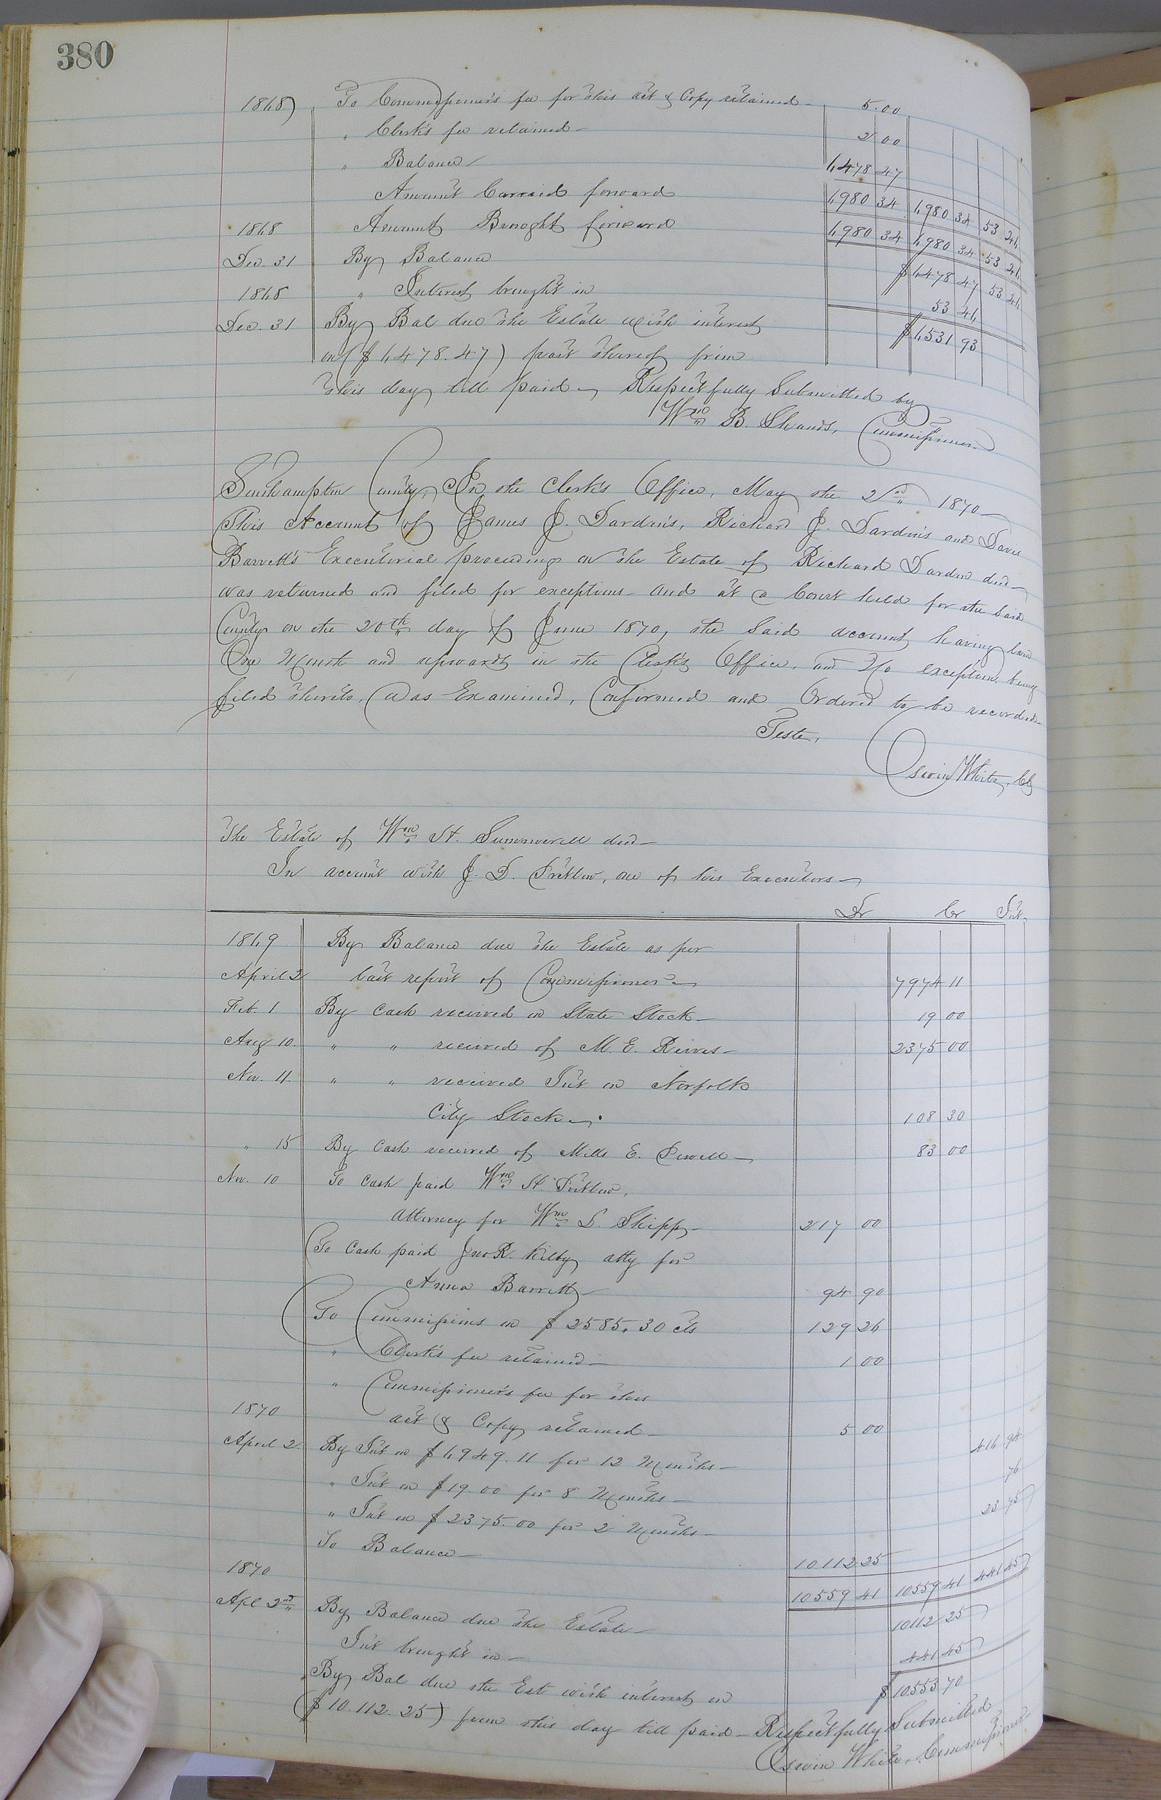 380
1868 To Commissioner's fee for this act & Copy retained 5.00
" Clerk's fee retained 2 00
" Balance 1,478 47
Amount Carraid forward 1,980 34 1,980 34 53 46
1868 Amount Brought forward 1,980 34 1,980 34 53 46
Dec. 31 By Balance $1,478 47 53 46
1868 " Interest brought in 53 46
Dec. 31 By Bal due the Estate with interest $1,531 93
on ($1,478.47) part thereof from
this day till paid Respectfully Submitted by
Wm B. Shands, Commissioner
Southampton County, In the Clerk's Office, May the 2nd 1870
This Account of James J. Darden's, Richard J. Darden's and Davis
Barrett's Executorial proceedings on the Estate of Richard Darden decd
was returned and filed for exceptions and at a Court held for the said
County on the 20th day of June 1870, the said account having laid
One Month and upwards in the Clerk's Office, and No exception being
filed thereto, was Examined, Confirmed and Ordered to be recorded
Teste,
Oswin White, Clk
The Estate of Wm H. Summerell decd
In account with J. D. Pretlow, one of his Executors
Dr Cr Int.
1869 By Balance due the Estate as per
April 2 last report of Commissioner 7974 11
Feb. 1 By Cash received on State Stock 19 00
Aug 10 " " received of M. E. Rieves 2375 00
Nov. 11 " " received Int on Norfolk
City Stock 108 30
" 15 By Cash received of Mills E. Powell 83 00
Nov. 10 To Cash paid Wm H Pretlow,
attorney for Wm S. Shipp 217 00
To Cash paid Jno R. Kilby atty for
Anna Barrett 94 90
To Commissions on $2585.30 cts 129 26
" Clerk's fee retained 1 00
" Commissioner's fee for this
1870 act & Copy retained 5 00
April 2 By Int on $6,949.11 for 12 Months 416 94
" Int on $19.00 for 8 Months 76
" Int on $2375.00 for 2 Months 23 75
To Balance 10,112 25
1870 10559 41 10559 41 441 45
Apl 2nd By Balance due the Estate 10112 25
Int brought in 441 45
By Bal due the Est with interest on $10553 70
($10.112.25) from this day till paid Respectfully Submitted
Oswin White, Commissioner